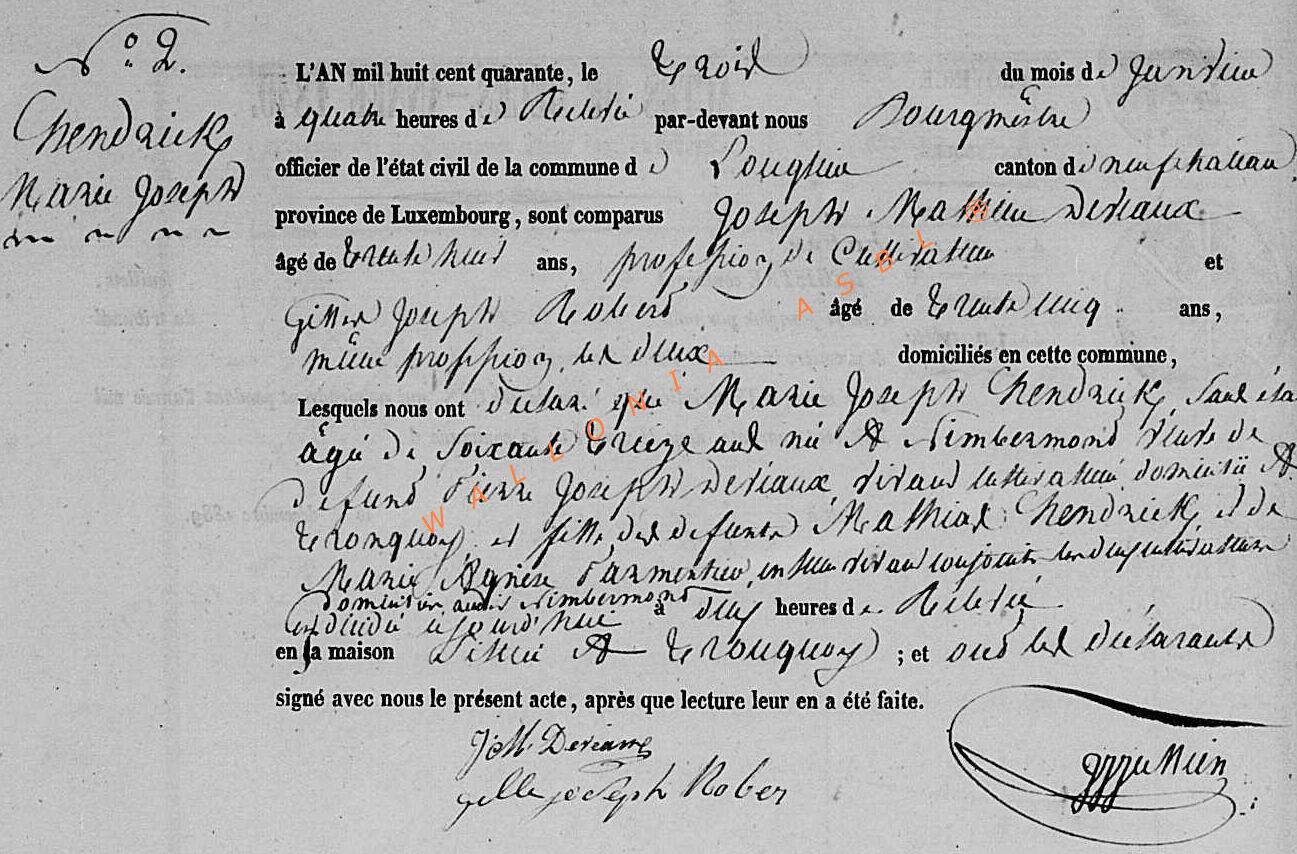 N° 2.
Chendrick
Marie Joseph
L'AN mil huit cent quarante, le trois du mois de Janvier
à quatre heures de Relevé par-devant nous Bourgmêstre
officier de l'état civil de la commune de Longlier canton de neufchateau,
province de Luxembourg, sont comparus Joseph Mathieu Deviaux
âgé de trente huit ans, profession de Cultivateur et
Gilles Joseph Robert âgé de trente cinq ans,
même profession, les deux domiciliés en cette commune,
Lesquels nous ont déclaré que Marie Joseph Chendrick, sans état
âgée de Soixante treize ans née A Nimbermond veuve de
defunt Pierre Joseph Deviaux, vivant cultivateur domicilié A
tronquoy, et fille des defunts Mathias Chendrick et de
Marie Agnèse Parmentier, en leur vivant conjoints les deux cultivateurs
domiciliés audit Nimbermond
est décédée aujourd'hui à deux heures de Relevé
en sa maison Située A tronquoy ; et ont les déclarants
signé avec nous le présent acte, après que lecture leur en a été faite.
J M Deviaux
gille joseph Rober
WALLONIA ASBL ®